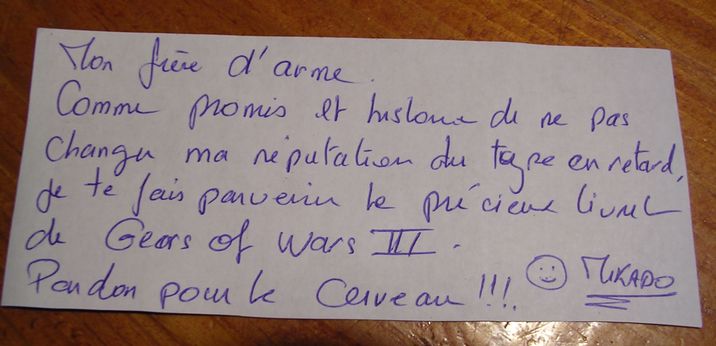 Mon frère d'arme.
Comme promis et histoire de ne pas
changer ma réputation du type en retard,
je te fais parvenir le précieux livret
de Gears of Wars III.
Pardon pour le Cerveau !!!
MIKADO